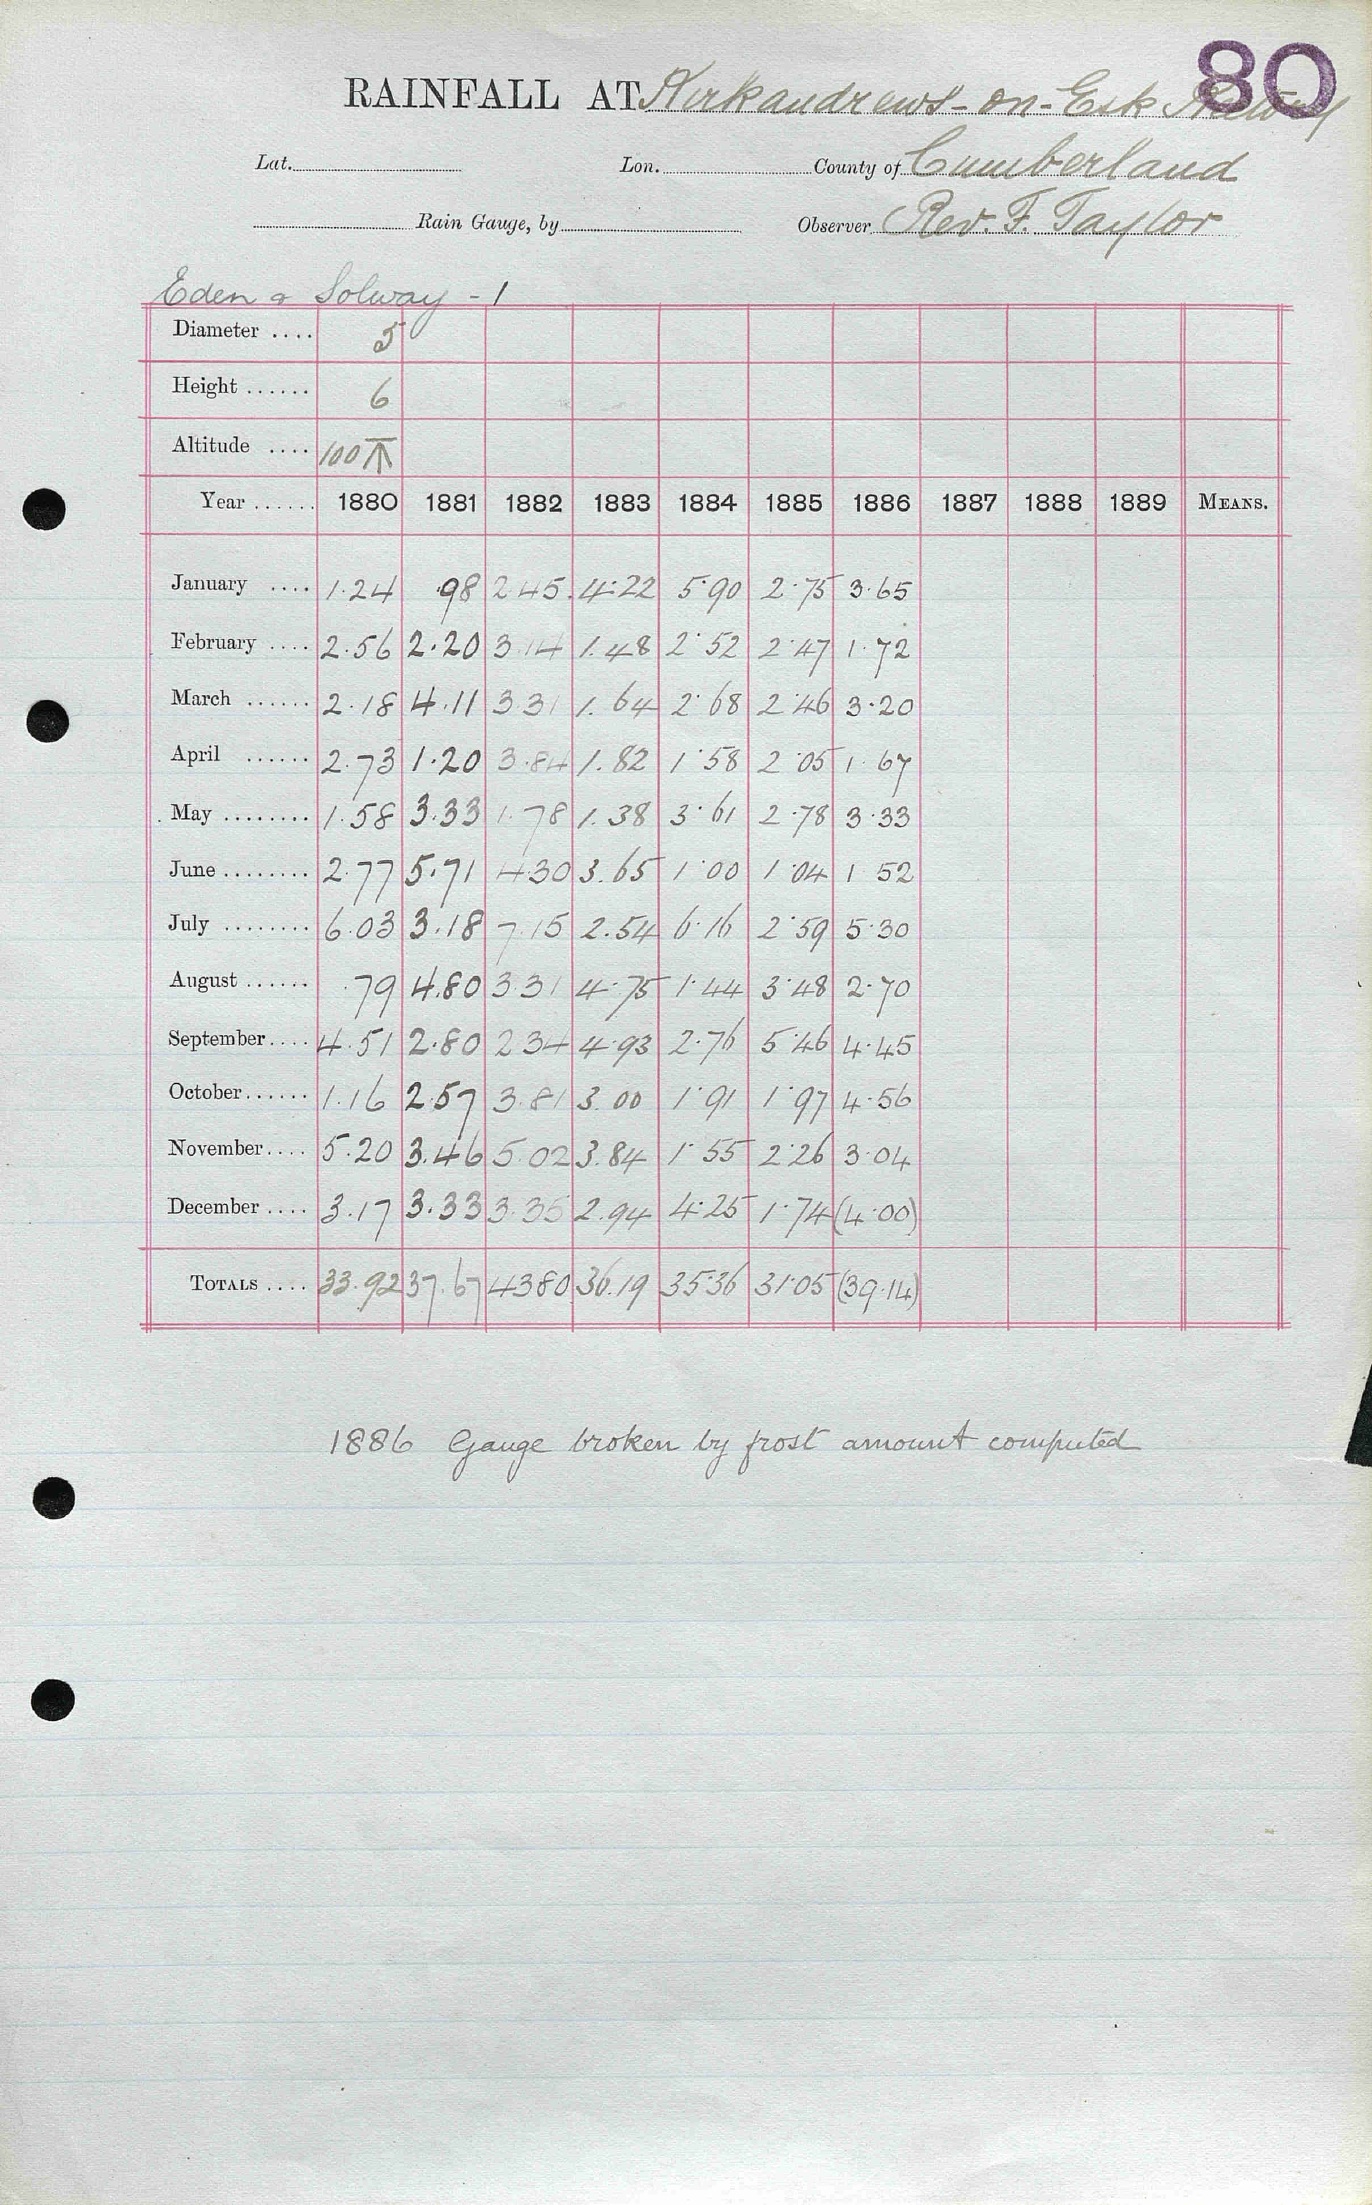 80
RAINFALL AT Kirkandrews-on-Esk
Lat. Lon. County of Cumberland
Rain Gauge, by Observer Rev. F. Taylor
Eden & Solway - 1
Diameter .... 5
Height ...... 6
Altitude .... 100
Year ...... 1880 1881 1882 1883 1884 1885 1886 1887 1888 1889 MEANS.
January .... 1.24 .98 2.45 4.22 5.90 2.75 3.65
February .... 2.56 2.20 3.14 1.48 2.52 2.47 1.72
March ...... 2.18 4.11 3.31 1.64 2.68 2.46 3.20
April ...... 2.73 1.20 3.84 1.82 1.58 2.05 1.67
May ........ 1.58 3.33 1.78 1.38 3.61 2.78 3.33
June ........ 2.77 5.71 4.30 3.65 1.00 1.04 1 52
July ........ 6.03 3.18 7.15 2.54 6.16 2.59 5.30
August ...... .79 4.80 3.31 4.75 1.44 3.48 2.70
September.... 4.51 2.80 2.34 4.93 2.76 5.46 4.45
October...... 1.16 2.57 3.81 3.00 1.91 1.97 4.56
November.... 5.20 3.46 5.02 3.84 1.55 2.26 3.04
December .... 3.17 3.33 3.35 2.94 4.25 1.74 (4.00)
TOTALS .... 33.92 37.67 4380 36.19 35.36 31.05 (39.14)
1886 Gauge broken by frost amount computed